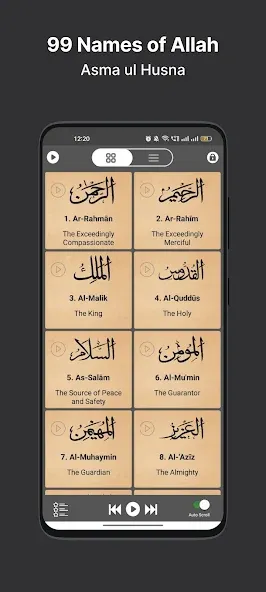 99 Names of Allah
Asma ul Husna
12:20
الرحمن
1. Ar-Rahmān
The Exceedingly
Compassionate
الرحيم
2. Ar-Rahīm
The Exceedingly
Merciful
الملك
3. Al-Malik
The King
القدوس
4. Al-Quddūs
The Holy
السلام
5. As-Salām
The Source of Peace
and Safety
المؤمن
6. Al-Mu'min
The Guarantor
المهيمن
7. Al-Muhaymin
The Guardian
العزيز
8. Al-'Azīz
The Almighty
Auto Scroll